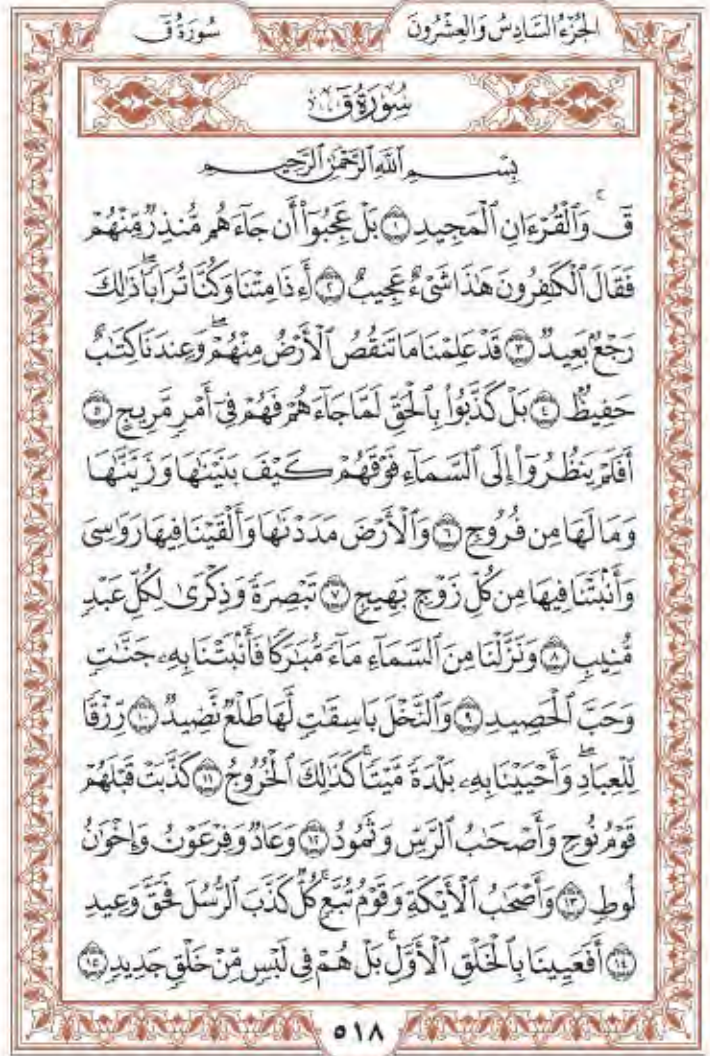 الجُزْءُ السَّادِسُ وَالعِشْرُونَ سُورَةُ قٓ
سُورَةُ قٓ
بِسۡمِ ٱللَّهِ ٱلرَّحۡمَٰنِ ٱلرَّحِيمِ
قٓۚ وَٱلۡقُرۡءَانِ ٱلۡمَجِيدِ ١ بَلۡ عَجِبُوٓاْ أَن جَآءَهُم مُّنذِرٞ مِّنۡهُمۡ
فَقَالَ ٱلۡكَٰفِرُونَ هَٰذَا شَيۡءٌ عَجِيبٌ ٢ أَءِذَا مِتۡنَا وَكُنَّا تُرَابٗاۖ ذَٰلِكَ
رَجۡعُۢ بَعِيدٞ ٣ قَدۡ عَلِمۡنَا مَا تَنقُصُ ٱلۡأَرۡضُ مِنۡهُمۡۖ وَعِندَنَا كِتَٰبٌ
حَفِيظُۢ ٤ بَلۡ كَذَّبُواْ بِٱلۡحَقِّ لَمَّا جَآءَهُمۡ فَهُمۡ فِيٓ أَمۡرٖ مَّرِيجٍ ٥
أَفَلَمۡ يَنظُرُوٓاْ إِلَى ٱلسَّمَآءِ فَوۡقَهُمۡ كَيۡفَ بَنَيۡنَٰهَا وَزَيَّنَّٰهَا
وَمَا لَهَا مِن فُرُوجٖ ٦ وَٱلۡأَرۡضَ مَدَدۡنَٰهَا وَأَلۡقَيۡنَا فِيهَا رَوَٰسِيَ
وَأَنۢبَتۡنَا فِيهَا مِن كُلِّ زَوۡجِۭ بَهِيجٖ ٧ تَبۡصِرَةٗ وَذِكۡرَىٰ لِكُلِّ عَبۡدٖ
مُّنِيبٖ ٨ وَنَزَّلۡنَا مِنَ ٱلسَّمَآءِ مَآءٗ مُّبَٰرَكٗا فَأَنۢبَتۡنَا بِهِۦ جَنَّٰتٖ
وَحَبَّ ٱلۡحَصِيدِ ٩ وَٱلنَّخۡلَ بَاسِقَٰتٖ لَّهَا طَلۡعٞ نَّضِيدٞ ١٠ رِّزۡقٗا
لِّلۡعِبَادِۖ وَأَحۡيَيۡنَا بِهِۦ بَلۡدَةٗ مَّيۡتٗاۚ كَذَٰلِكَ ٱلۡخُرُوجُ ١١ كَذَّبَتۡ قَبۡلَهُمۡ
قَوۡمُ نُوحٖ وَأَصۡحَٰبُ ٱلرَّسِّ وَثَمُودُ ١٢ وَعَادٞ وَفِرۡعَوۡنُ وَإِخۡوَٰنُ
لُوطٖ ١٣ وَأَصۡحَٰبُ ٱلۡأَيۡكَةِ وَقَوۡمُ تُبَّعٖۚ كُلّٞ كَذَّبَ ٱلرُّسُلَ فَحَقَّ وَعِيدِ
١٤ أَفَعَيِينَا بِٱلۡخَلۡقِ ٱلۡأَوَّلِۚ بَلۡ هُمۡ فِي لَبۡسٖ مِّنۡ خَلۡقٖ جَدِيدٖ ١٥
٥١٨